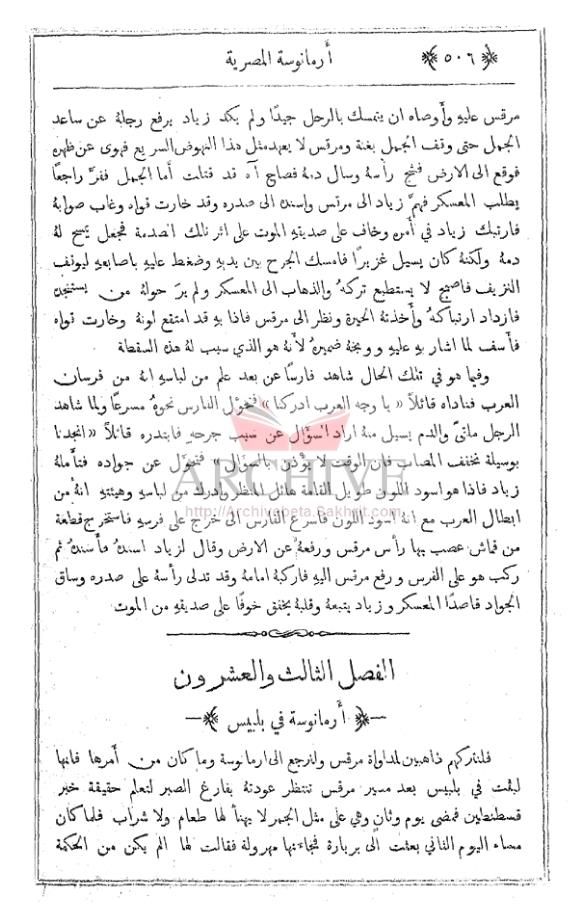 ﴿ ٥٠٦ ﴾
أرمانوسة المصرية
مرقس عليه وأوصاه ان يتمسك بالرجل جيدًا ولم يكد زياد يرفع رجله عن ساعد
الجمل حتى وقف الجمل بغتة ومرقس لا يعهد مثل هذا النهوض السريع فهوى عن ظهره
فوقع الى الارض فشج رأسه وسال دمه فصاح آه قد قتلت أما الجمل ففرَّ راجعًا
يطلب المعسكر فهمَّ زياد الى مرقس واسنده الى صدره وقد خارت قواه وغاب صوابه
فارتبك زياد في أمره وخاف على صديقهِ الموت على اثر تلك الصدمة فجعل يمسح لهُ
دمهُ ولكنهُ كان يسيل غزيرًا فامسك الجرح بين يديهِ وضغط عليهِ باصابعهِ ليوقف
النزيف فاصبح لا يستطيع تركهُ والذهاب الى المعسكر ولم يرَ حولهُ من يستنجده
فازداد ارتباكهُ وأخذتهُ الحيرة ونظر الى مرقس فاذا بهِ قد امتقع لونهُ وخارت قواه
فأسف لما اشار بهِ عليهِ ووبخهُ ضميرهُ لأنهُ هو الذي سبب لهُ هذه السقطة
وفيما هو في تلك الحال شاهد فارسًا عن بعد علم من لباسهِ انهُ من فرسان
العرب فناداه قائلاً « يا وجه العرب ادركنا » فحوَّل الفارس نحوهُ مسرعًا ولما شاهد
الرجل ملقىً والدم يسيل منهُ اراد السؤال عن سبب جرحهِ فابتدره قائلاً « انجدنا
بوسيلة تخفف المصاب فان الوقت لا يؤذن بالسؤال » فتحوَّل عن جواده فتأملهُ
زياد فاذا هو اسود اللون طويل القامة هائل المنظر وادرك من لباسهِ وهيئتهِ انهُ من
ابطال العرب مع انهُ اسود اللون فاسرع الفارس الى خرج على فرسهِ فاستخرج قطعة
من قماش عصب بها رأس مرقس ورفعهُ عن الارض وقال لزياد اسندهُ فأسندهُ ثم
ركب هو على الفرس ورفع مرقس اليهِ فاركبهُ امامهُ وقد تدلى رأسهُ على صدره وساق
الجواد قاصدًا المعسكر وزياد يتبعهُ وقلبهُ يخفق خوفًا على صديقهِ من الموت
ARCHIVE
http://Archivebeta.Sakhrit.com
الفصل الثالث والعشرون
﴿ أرمانوسة في بلبيس ﴾
فلنتركهم ذاهبين لمداواة مرقس ولنرجع الى ارمانوسة وما كان من أمرها فانها
لبثت في بلبيس بعد مسير مرقس تنتظر عودتهُ بفارغ الصبر لتعلم حقيقة خبر
قسطنطين فمضى يوم وثانٍ وهي على مثل الجمر لا يهنأ لها طعام ولا شراب فلما كان
مساء اليوم الثاني بعثت الى بربارة فجاءتها مهرولة فقالت لها الم يكن من الحكمة